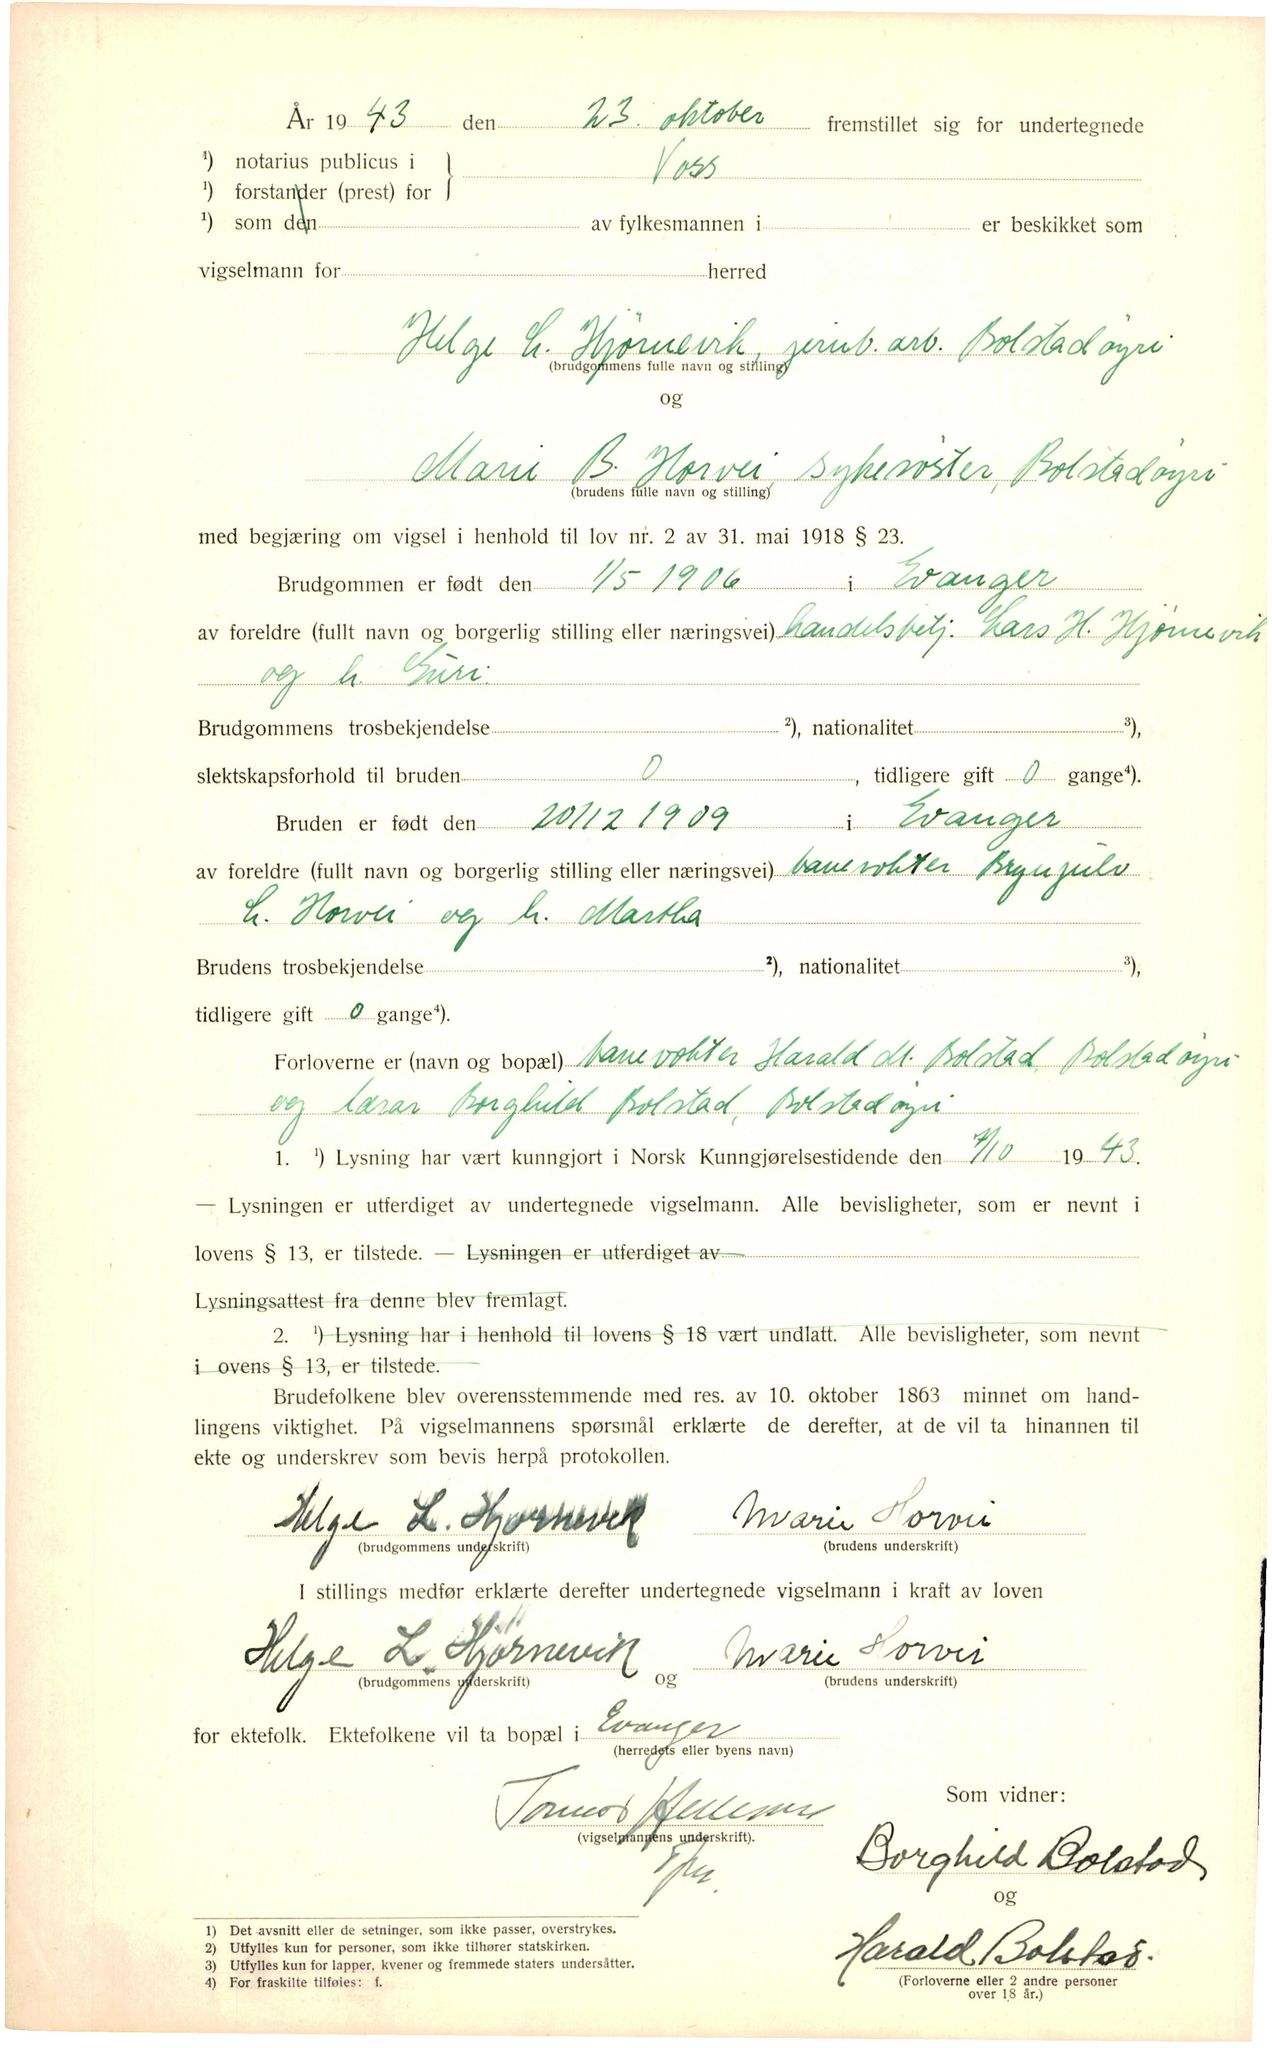 År 19 43 den 23. oktober fremstillet sig for undertegnede
¹) notarius publicus i
Voss
¹) forstander (prest) for
¹) som den av fylkesmannen i er beskikket som
vigselmann for herred
Helge L. Hjørnevik, jernb. arb. Bolstadøyri
(brudgommens fulle navn og stilling)
og
Marie B. Horvei, sykesøster, Bolstadøyri
(brudens fulle navn og stilling)
med begjæring om vigsel i henhold til lov nr. 2 av 31. mai 1918 § 23.
Brudgommen er født den 1/5 1906 i Evanger
av foreldre (fullt navn og borgerlig stilling eller næringsvei) handelsbetj. Lars H. Hjørnevik
og h. Guri.
Brudgommens trosbekjendelse ²), nationalitet ³),
slektskapsforhold til bruden 0, tidligere gift 0 gange⁴).
Bruden er født den 20/12 1909 i Evanger
av foreldre (fullt navn og borgerlig stilling eller næringsvei) banevokter Brynjulv
L. Horvei og h. Martha
Brudens trosbekjendelse ²), nationalitet ³),
tidligere gift 0 gange⁴).
Forloverne er (navn og bopæl) banevokter Harald M. Bolstad, Bolstadøyri
og lærar Borghild Bolstad, Bolstadøyri
1. ¹) Lysning har vært kunngjort i Norsk Kunngjørelsestidende den 7/10 19 43.
— Lysningen er utferdiget av undertegnede vigselmann. Alle bevisligheter, som er nevnt i
lovens § 13, er tilstede. — Lysningen er utferdiget av
Lysningsattest fra denne blev fremlagt.
2. ¹) Lysning har i henhold til lovens § 18 vært undlatt. Alle bevisligheter, som nevnt
i ovens § 13, er tilstede.
Brudefolkene blev overensstemmende med res. av 10. oktober 1863 minnet om hand-
lingens viktighet. På vigselmannens spørsmål erklærte de derefter, at de vil ta hinannen til
ekte og underskrev som bevis herpå protokollen.
Helge L. Hjørnevik Marie Horvei
(brudgommens underskrift) (brudens underskrift)
I stillings medfør erklærte derefter undertegnede vigselmann i kraft av loven
Helge L. Hjørnevik og Marie Horvei
(brudgommens underskrift) (brudens underskrift)
for ektefolk. Ektefolkene vil ta bopæl i Evanger
(herredets eller byens navn)
Som vidner:
(vigselmannens underskrift).
Borghild Bolstad
og
Harald Bolstad.
(Forloverne eller 2 andre personer
over 18 år.)
1) Det avsnitt eller de setninger, som ikke passer, overstrykes.
2) Utfylles kun for personer, som ikke tilhører statskirken.
3) Utfylles kun for lapper, kvener og fremmede staters undersåtter.
4) For fraskilte tilføies: f.